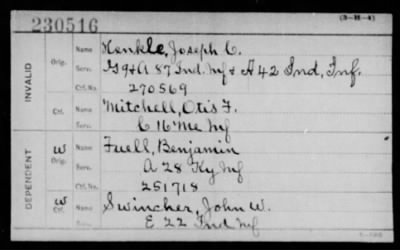 230516
(3-H-4)
INVALID
Orig. Name Henkle, Joseph C.
Serv. I, G & A 87 Ind. Inf & A 42 Ind, Inf.
Ctf. No. 270569
Ctf. Name Mitchell, Otis F.
Serv. C 16 Me Inf
DEPENDENT
W Orig. Name Fuell, Benjamin
Serv. A 28 Ky Inf
Ctf. No. 251718
W Ctf. Name Swincher, John W.
Serv. E 22 Ind Inf